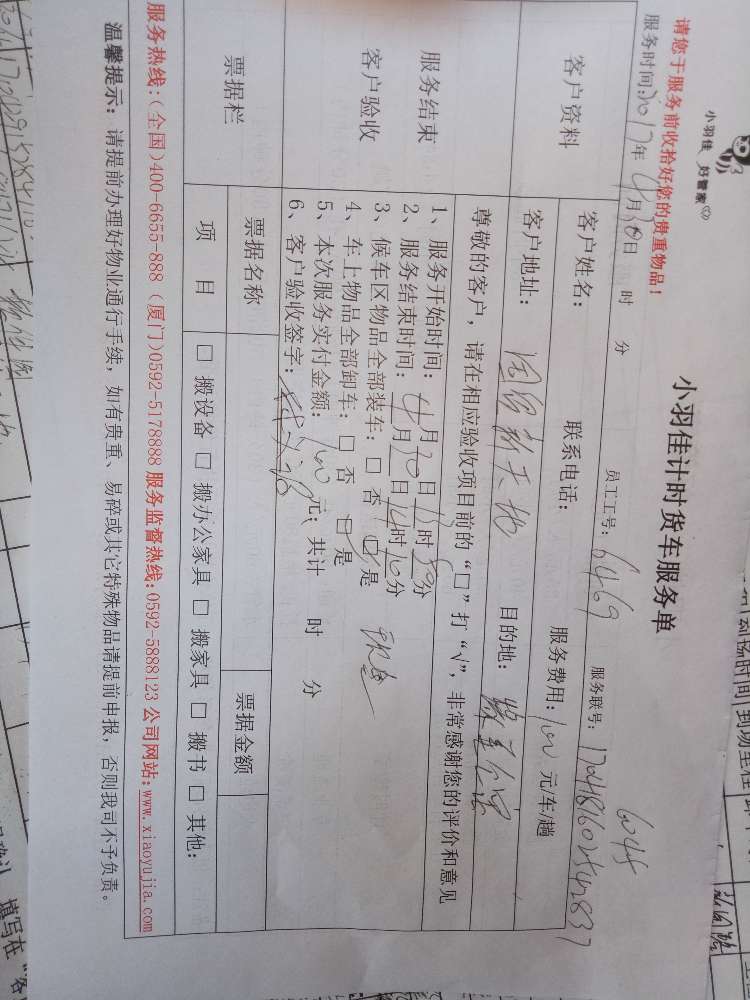 小羽佳 好管家
小羽佳计时货车服务单
6045
请您于服务前收拾好您的贵重物品！ 员工工号：6469 服务联号：1704181602542837
服务时间：2017年4月20日 时 分
客户资料
客户姓名： 联系电话： 服务费用：100元/车/趟
客户地址： 国贸新天地 目的地：
服务结束
客户验收
尊敬的客户，请在相应验收项目前的“□”打“√”，非常感谢您的评价和意见
1、服务开始时间：4月20日13时30分
2、服务结束时间：4月20日14时10分
3、候车区物品全部装车：□ 否 ☑是
4、车上物品全部卸车：□ 否 ☑是
5、本次服务实付金额：100元；共计 时 分
6、客户验收签字：
票据栏
票据名称 票据金额
项 目 □ 搬设备 □ 搬办公家具 □ 搬家具 □ 搬书 □ 其他：
服务热线：（全国）400-6655-888 （厦门）0592-5178888 服务监督热线：0592-5888123 公司网站：www.xiaoyujia.com
温馨提示：请提前办理好物业通行手续，如有贵重、易碎或其它特殊物品请提前申报，否则我司不予负责。